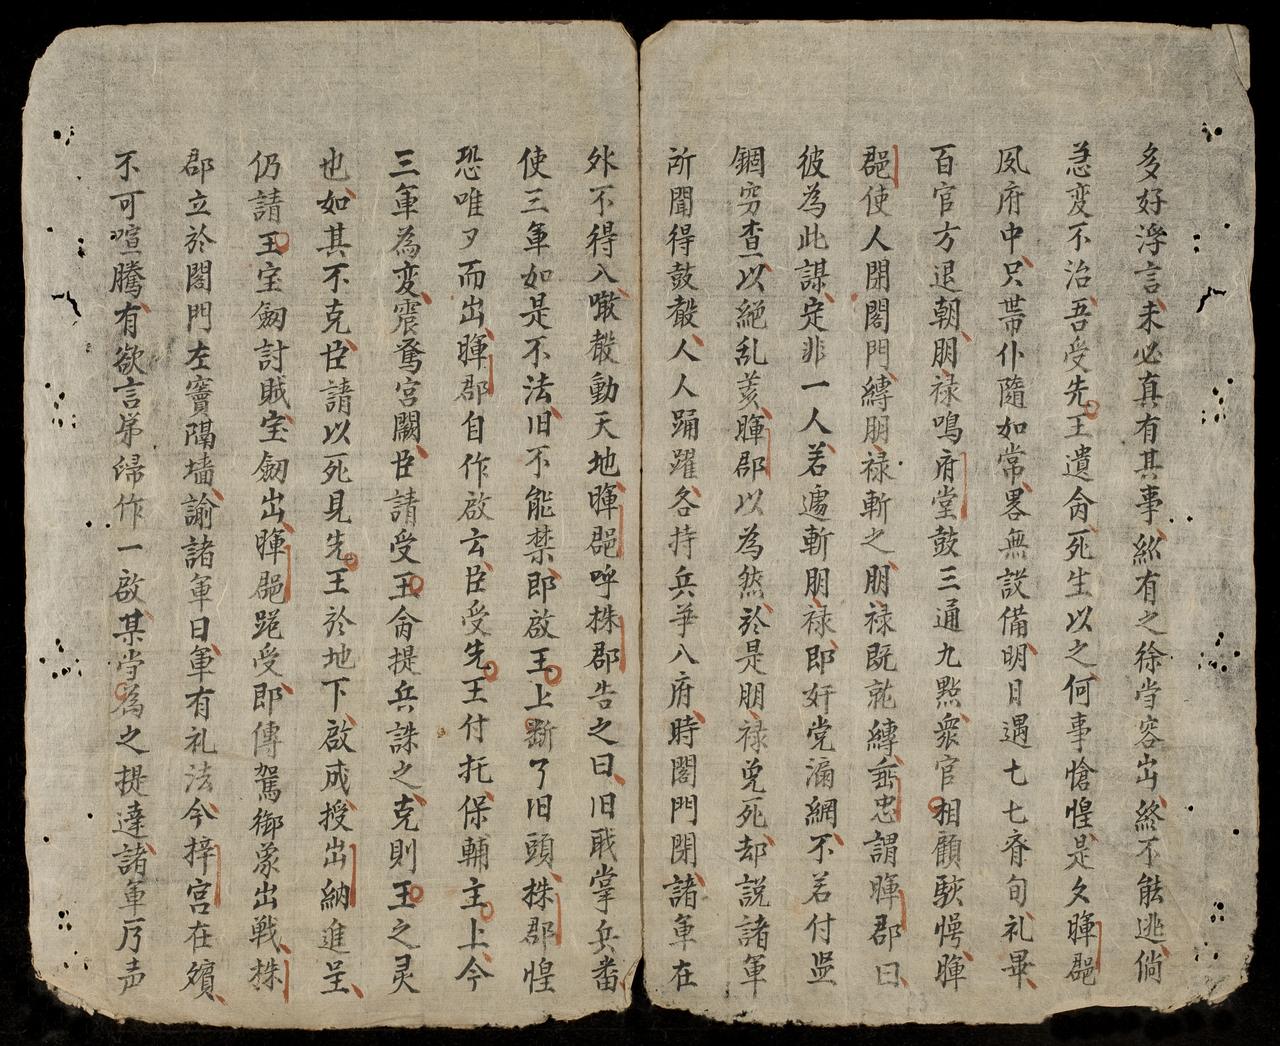 多好浮言未必真有其事縱有之徐当容出終不能逃倘
急变不治吾受先王遺命死生以之何事愴惶是夕暉郡
夙府中只帶仆隨如常畧無設備明日遇七七齊旬礼畢
百官方退朝朋禄鳴府堂鼓三通九點衆官相顧駭愕暉
郡使人閉閣門縛朋禄斬之朋禄既就縛垂忠謂暉郡曰
彼為此謀定非一人若遽斬朋禄即奸党漏網不若付监
錮窮查以絶乱萎暉郡以為然於是朋禄免死却説諸軍
所聞得鼓聲人人踊躍各持兵爭入府時閣門閉諸軍在
外不得入噉聲動天地暉郡呼株郡告之曰旧戢掌兵番
使三軍如是不法旧不能禁即啟王上断了旧頭株郡惶
恐唯夕而出暉郡自作啟云臣受先王付托保輔主上今
三軍為変震驚宮闕臣請受王命提兵誅之克則王之灵
也如其不克臣請以死見先王於地下啟成授出納進呈
仍請王宝劒討賊宝劒出暉郡跪受即傳駕御象出戦株
郡立於閣門左竇隔墻諭諸軍曰軍有礼法今梓宮在殯
不可喧騰有欲言第歸作一啟某当為之提達諸軍乃声